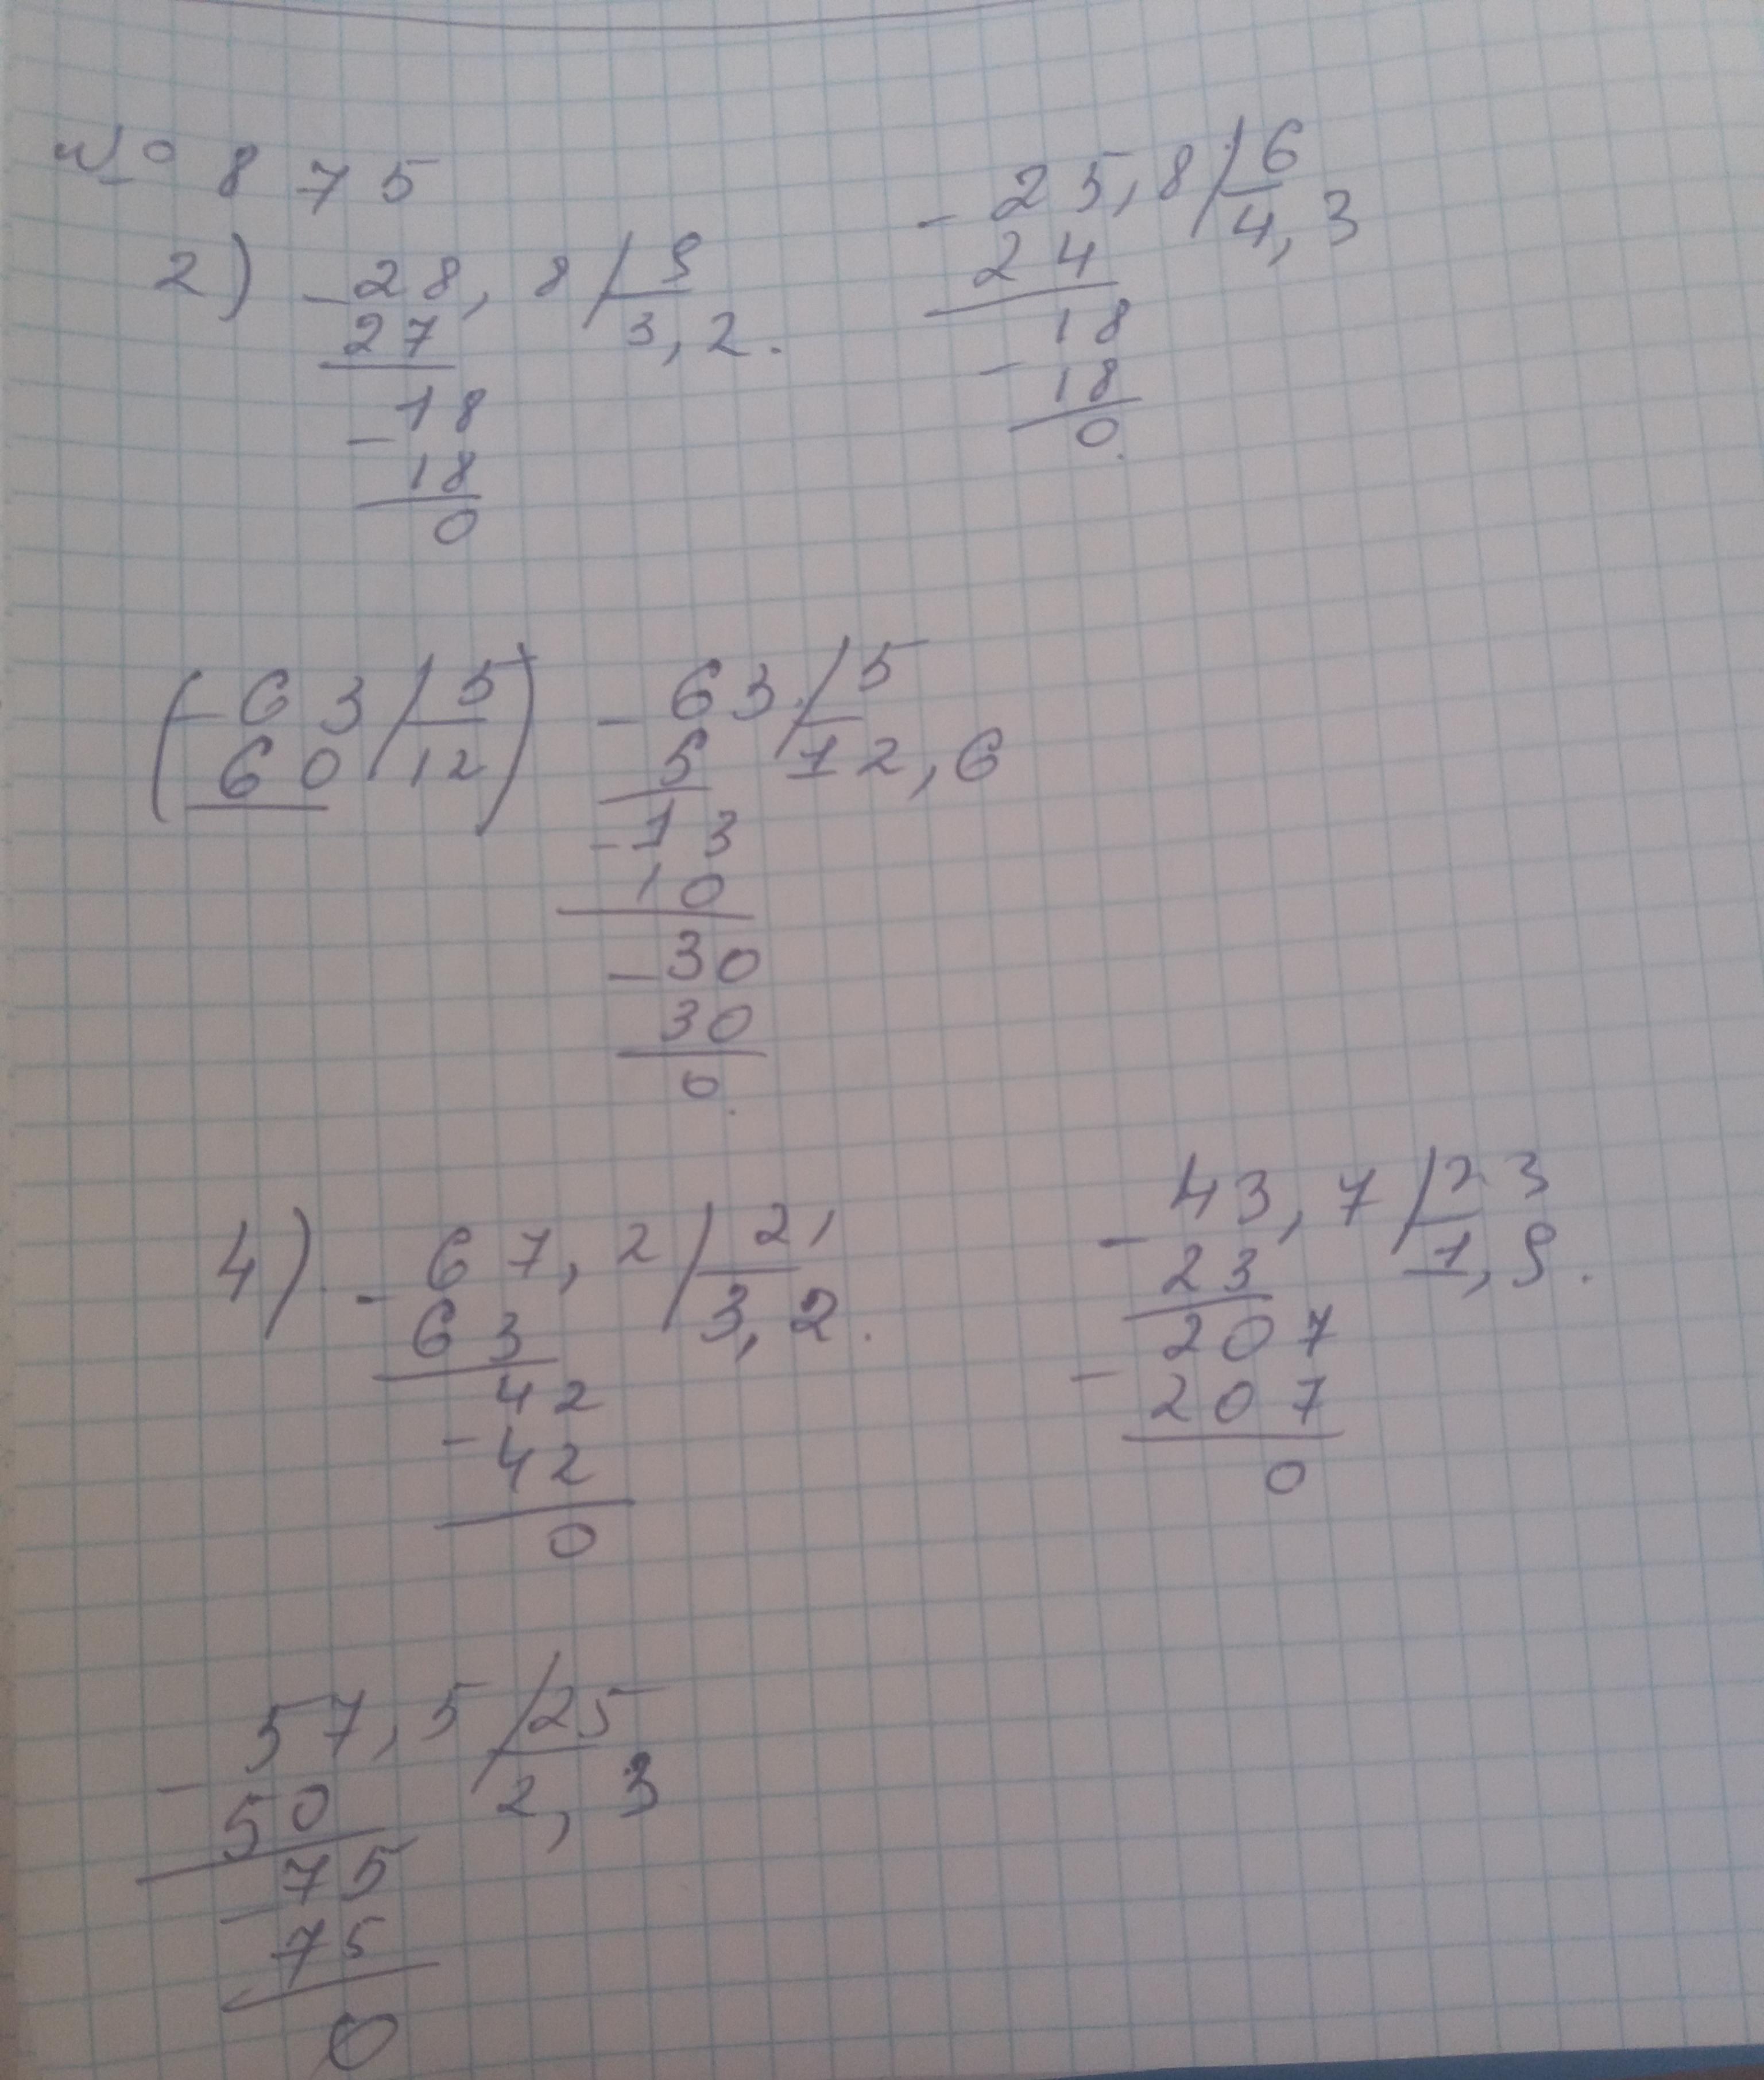 № 875
2) - 28,8 / 9
27 3,2.
- 18
18
0
- 25,8 / 6
24 4,3
- 18
18
0.
( - 63 / 5 )
60 12
- 63 / 5
5 12,6
- 13
10
- 30
30
0.
4) - 67,2 / 21
63 3,2.
- 42
42
0
- 43,7 / 23
23 1,9.
- 207
207
0
- 57,5 / 25
50 2,3
- 75
75
0